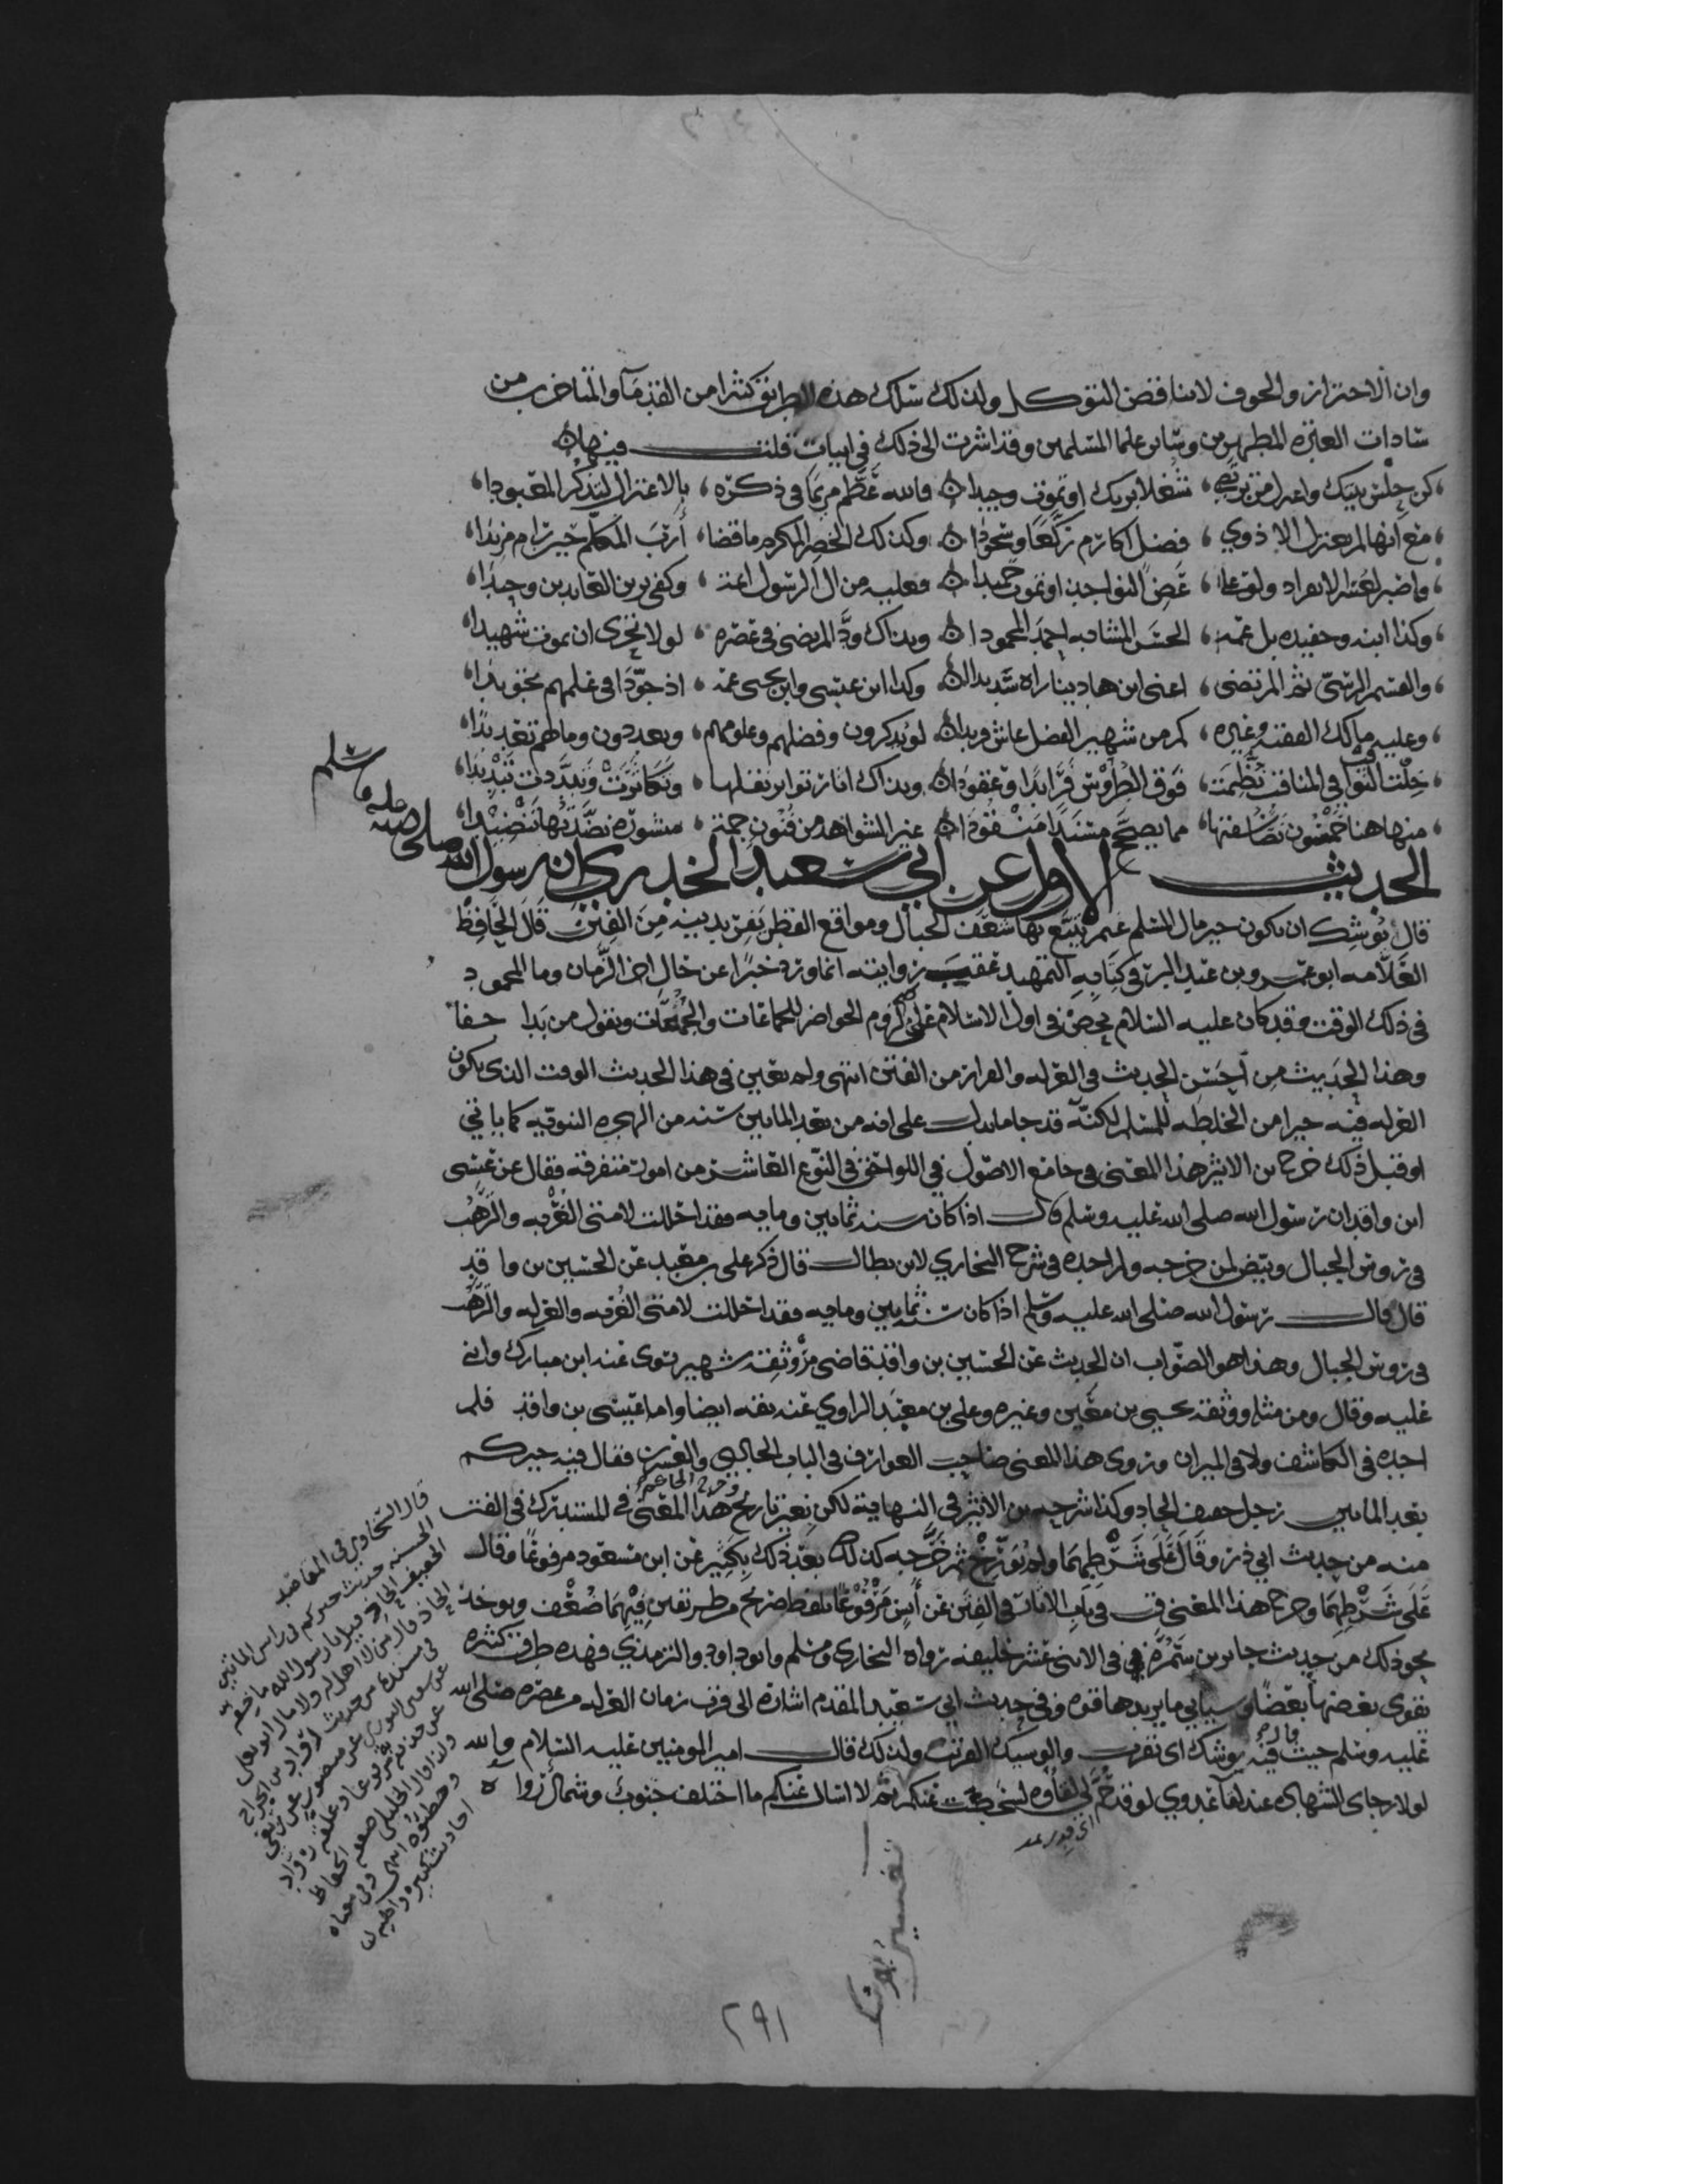 وان الاحتراز والخوف لا يناقض التوكل ولذلك سلك هذه الطرائق كثيرا من القدماء والمتأخرين من
سادات العترة المطهرين وسائر علما المسلمين وقد اشرت الى ذلك في ابيات قلت فيها
كن حلس بيتك شغلا بربك او تموت وحيدا فالله عظم مريما في ذكره بالاعتزال لتذكر المعبودا
مع انها لم تعتزل الا ذوي فضل اكارم ركعا وسجودا وكذلك الخضر المكرم ما قضا ارب المكلم حين رام مزيدا
الانفراد ولو على عض النواجذ او تموت حميدا فعليه من ال الرسول ائمة وكفى بزين العابدين وحيدا
وكذا ابنه وحفيده بل عمه الحسن المشابه احمد المحمودا وبذاك ود المرتضى في عصره لولا تحرى ان يموت شهيدا
والقسم الرسي ثم المرتضى اعني ابن هادينا راه سديدا وكذا ابن عيسى وابن يحيى عنه اذ جودا في علمهم تجويدا
وعليه مالك الفقيه وغيره كم من شهير الفضل عاش فريدا لو يذكرون وفضلهم وعلومهم ويعددون وما لهم تعديدا
خلت التوالي في المناقب نظمت فوق الطروس فرايدا وعقودا وبذاك اثار تواتر نقلها وتكاثرت وتبددت تبديدا
منها هنا خمسون مما يصح مسندا منقودا غير الشواهد من فنون جمة منثورة نضدتها تنضيدا
الحديث الاول عن ابي سعيد الخدري ان رسول الله صلى الله عليه وسلم
قال يوشك ان يكون خير مال المسلم غنم يتبع بها شعف الجبال ومواقع القطر يفر بدينه من الفتن قال الحافظ
العلامه ابو عمر بن عبد البر في كتابه التمهيد عقيب روايته انما ورد خبرا عن حال اخر الزمان وما المحمود
في ذلك الوقت وقد كان عليه السلام يحض في اول الاسلام على لزوم الحواضر للجماعات والجمعات ويقول من بدا جفا
وهذا الحديث من احسن الحديث في العزله والفرار من الفتن انتهى ولم يتعين في هذا الحديث الوقت الذي يكون
العزله فيه خيرا من الخلطه للمسلم لكنه قد جا ما يدل على انه من بعد الماتين سنه من الهجره النبويه كما ياتي
او قبل ذلك خرج بن الاثير هذا المعنى في جامع الاصول في اللواحق في النوع العاشر من امور متفرقه فقال عن عيسى
ابن واقد ان رسول الله صلى الله عليه وسلم قال اذا كان سنه ثمانين ومايه فقد احللت لامتي العزبه والترهب
في روس الجبال وبيض لمن خرجه ولم اجده في شرح البخاري لابن بطال قال ذكر علي بن معبد عن الحسين بن واقد
قال قال رسول الله صلى الله عليه وسلم اذا كان سنه ثمانين ومايه فقد احللت لامتي العزبه والعزله والترهب
في روس الجبال وهذا هو الصواب ان الحديث عن الحسين بن واقد قاضي مرو ثقه شهير روى عنه ابن مبارك واثنى
عليه وقال ومن مثله ووثقه يحيى بن معين وغيره وعلي بن معبد الراوي عنه ثقه ايضا واما عيسى بن واقد فلم
اجده في الكاشف ولا في الميزان وروى هذا المعنى صاحب العوارف في الباب الحادي والعشرين فقال فيه خيركم
بعد الماتين رجل خفيف الحاذ وكذا شرحه بن الاثير في النهاية لكن بغير تاريخ وخرج الحاكم هذا المعنى في المستدرك في الفتن
منه من حديث ابي ذر وقال على شرطهما ولم يورخ ثم خرجه كذلك بعد ذلك بكثير عن ابن مسعود مرفوعا وقال
على شرطهما وخرج هذا المعنى ق في باب الايات في الفتن عن انس مرفوعا بلفظ صريح من طريقين فيهما ضعف ويوخذ
نحو ذلك من حديث جابر بن سمره في الاثنى عشر خليفه رواه البخاري ومسلم وابو داود والترمذي فهذه طرق كثيره
يقوي بعضها بعضا وسياتي ما يزيدها قوه وفي حديث ابي سعيد المقدم اشارة الى قرب زمان العزله من عصره صلى الله
عليه وسلم حيث قال فيه يوشك اي يقرب والوشيك القريب ولذلك قال امير المومنين عليه السلام والله
لولا رجاي الشهاده عند لقا عدوي لو قد حم لي لقاوه لشخصت عنكم ثم لا اسال عنكم ما اختلف جنوب وشمال
اي قدر
قال السخاوي في المقاصد
الحسنه حديث خيركم في راس الماتين
الخفيف الحاذ قيل يا رسول الله ما خفه
الحاذ قال من لا اهل له ولا مال ابو يعلى
في مسنده من حديث رواد بن الجراح
عن سفين الثوري عن منصور عن ربعي
عن حذيفه
ولذا قال الخليلي ضعفه الحفاظ
وخطئوه انتهى وفي معناه
احاديث كثيره واهيه
٢٩١